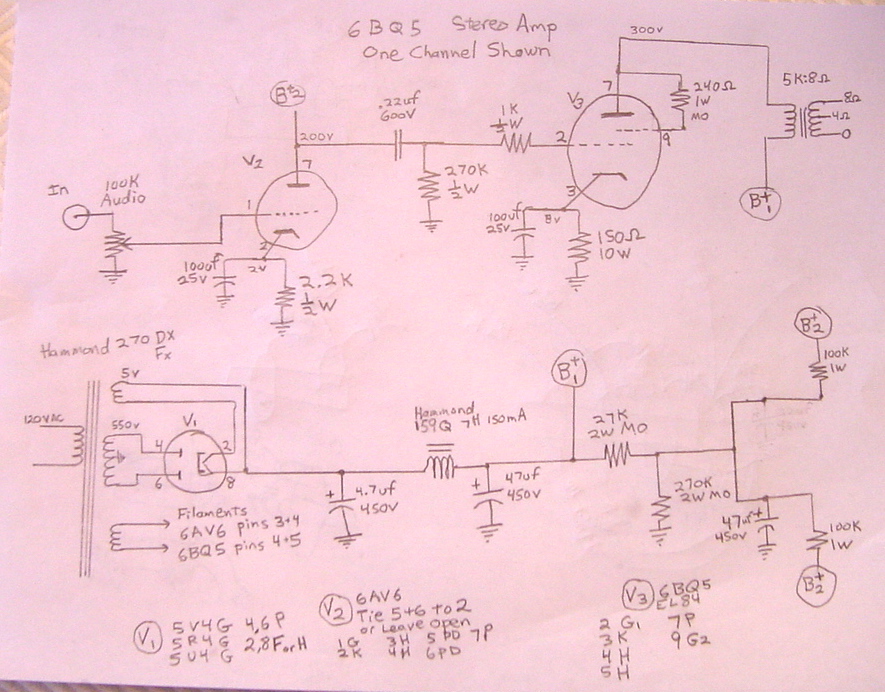 6BQ5 Stereo Amp
One Channel Shown
300V
B+2
.22uf
600V
1K
½W
V3
7
240Ω
1W
MO
5K:8Ω
8Ω
4Ω
0
200V
7
V2
2
9
In
100K
Audio
1
270K
½W
3
100uf
25V
8V
150Ω
10W
B+1
2
2V
100uf
25V
2.2K
½W
Hammond 270 DX
FX
5V
120VAC
550V
V1
4
2
6
8
Hammond
159Q 7H 150mA
B+1
27K
2W MO
B+2
100K
1W
4.7uf
450V
47uf
450V
270K
2W MO
47uf
450V
100K
1W
B+2
Filaments
6AV6 pins 3+4
6BQ5 pins 4+5
V1
5V4G 4,6 P
5R4G 2,8 F or H
5U4G
V2
6AV6
Tie 5+6 to 2
or Leave open
1G 3H 5PD 7P
2K 4H 6PD
V3
6BQ5
EL84
2 G1 7P
3K 9 G2
4 H
5 H